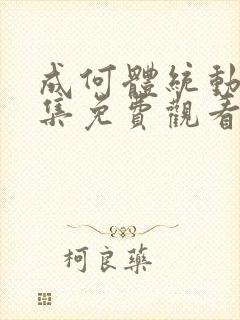 成何體統動
集免費觀看
柯良藥